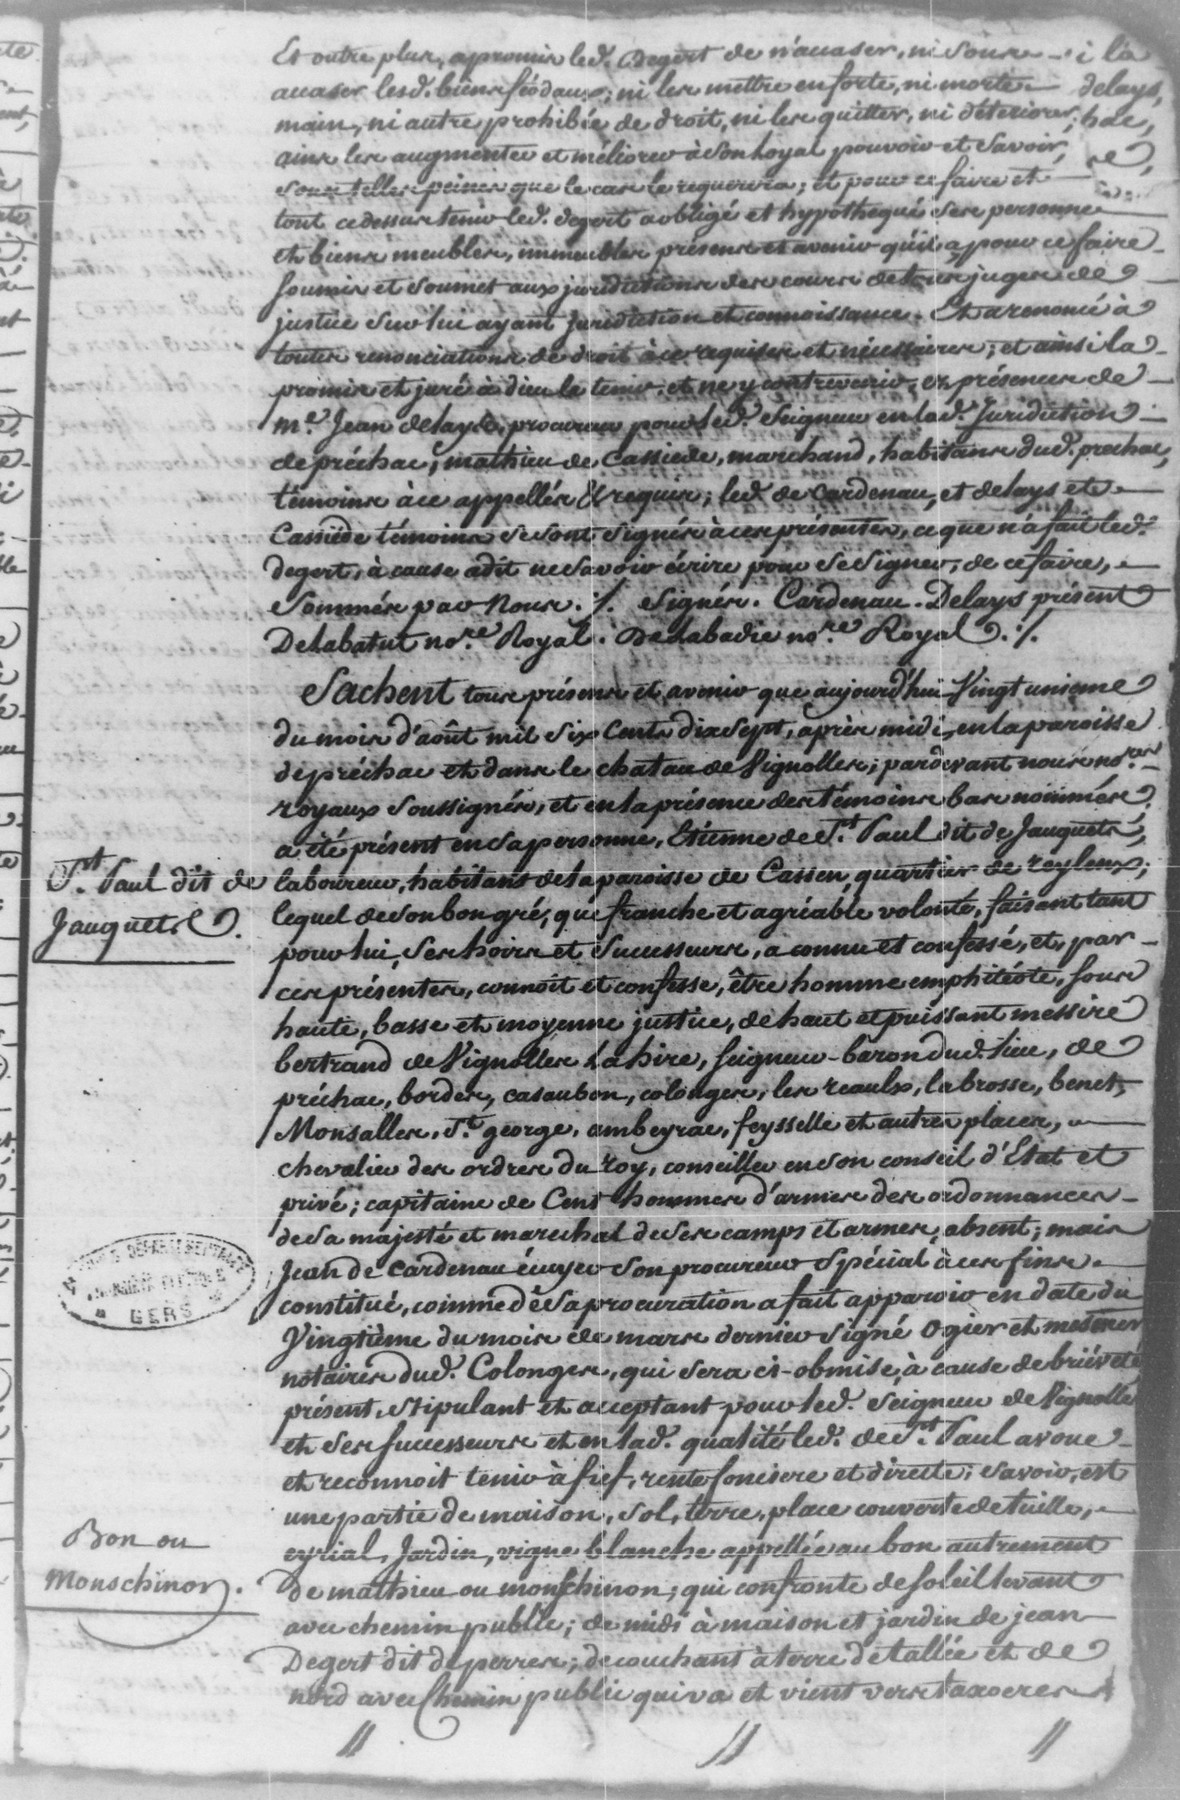 Et outre plus, a promis led. Degert de n'acaser, ni sous
acaser lesd. biens féodaux; ni les mettre en forte, ni morte
main, ni autre prohibée de droit, ni les quitter, ni déteriorer,
ains les augmenter et méliorer à son loyal pouvoir et savoir,
sous telles peines que le cas le requerera; et pour ce faire et
tout ce dessus tenir led. degert a obligé et hypothequé ses personne
et biens meubles, immeubles présens et avenir qu'il a pour ce faire
soumis et soumet aux juridictions des cours de tous juges de
justice sur lui ayant juridiction et connoissance. Et a renoncé à
toutes renonciations de droit à ce requises et nécessaires; et ainsi l'a
promis et juré à dieu le tenir, et ne y contrevenir, en présences de
Me. Jean delayds, procureur pour led. Seigneur en lad. Juridiction
de préchac, mathieu de Cassiede, marchand, habitans dud. prechac,
témoins à ce appellés & requis; led. de Cardenau, et delays et
Cassiède témoins se sont signés à ces présentes, ce que n'a fait led.
degert, à cause a dit ne savoir écrire pour se signer, de ce faire,
sommés par Nous. /. Signés. Cardenau. Delays présent
Delabatut nore. Royal. Delabadie nore. Royal. /.
Sachent tous présens et avenir que aujourd'hui Vingt unieme
du mois d'août mil six Cents dix sept, après midi, en la paroisse
de préchac et dans le chatau de Vignolles; pardevant nous nores.
royaux soussignés, et en la présence des témoins bas nommés,
a été présent en sa personne, Etienne de St. Paul dit de Jauquets,
St. Paul dit de
Jauquets.
laboureur, habitant de la paroisse de Cassen, quartier de reyleux;
lequel de son bon gré, que franche et agréable volonté, faisant tant
pour lui, ses hoirs et successeurs, a connu et confessé, et, par
ces présentes, connoit et confesse, être homme emphitéote, sous
haute, basse et moyenne justice, de haut et puissant messire
bertrand de Vignolles Lahire, seigneur-baron dud. lieu, de
préchac, bordes, casaubon, colonges, les reaulx, labrosse, benet,
Monsalles, St. george, ambeyrac, feysselle et autres places,
chevalier des ordres du roy, conseiller en son conseil d'Etat et
privé; capitaine de Cent hommes d'armes des ordonnances
de sa majesté et marechal de ses camps et armes, absent; mais
Jean de Cardenau écuyer son procureur spécial à ces fins
constitué, comme de sa procuration a fait apparoir en date du
Vingtième du mois de mars dernier signé Ogier et mesmer
notaires dud. Colonges, qui sera ci-obmise, à cause de briéveté
présent, stipulant et acceptant pour led. Seigneur de Vignolle
et ses successeurs et en lad. qualité led. de St. Paul avoue
et reconnoit tenir à fief, rente fonciere et directe; savoir, est
une partie de maison, sol, terre, place couverte de tuille,
eyrial, Jardin, vigne blanche appellée au bon autrement
Bon ou
Monschinon.
de mathieu ou monschinon; qui confronte de soleil levant
avec chemin public; de midi à maison et jardin de jean
Degert dit deperres; de couchant à terre d'etallée et de
nord avec chemin public qui va et vient vers
GERS